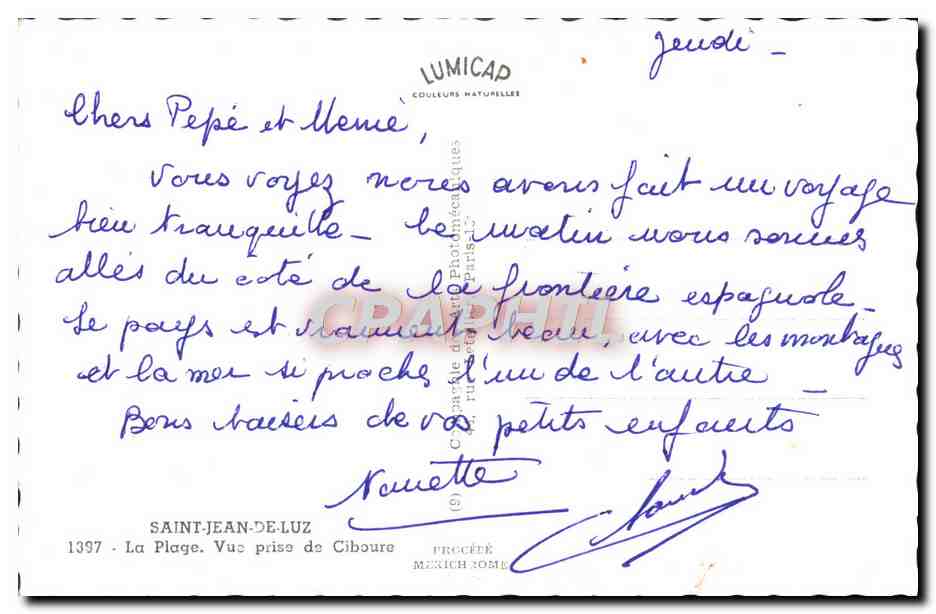 Jeudi -
LUMICAP
COULEURS NATURELLES
Chers Pépé et Mémé,
Vous voyez nous avons fait un voyage
bien tranquille - Le matin nous sommes
allés du côté de la frontière espagnole -
Le pays est vraiment beau, avec les montagnes
et la mer si proches l'un de l'autre -
Bons baisers de vos petits enfants
Nanette
SAINT-JEAN-DE-LUZ
1397 - La Plage. Vue prise de Ciboure
PROCÉDÉ
MEXICHROME
CPAPHIL
(9) Compagnie des Arts Photomécaniques
Paris-15